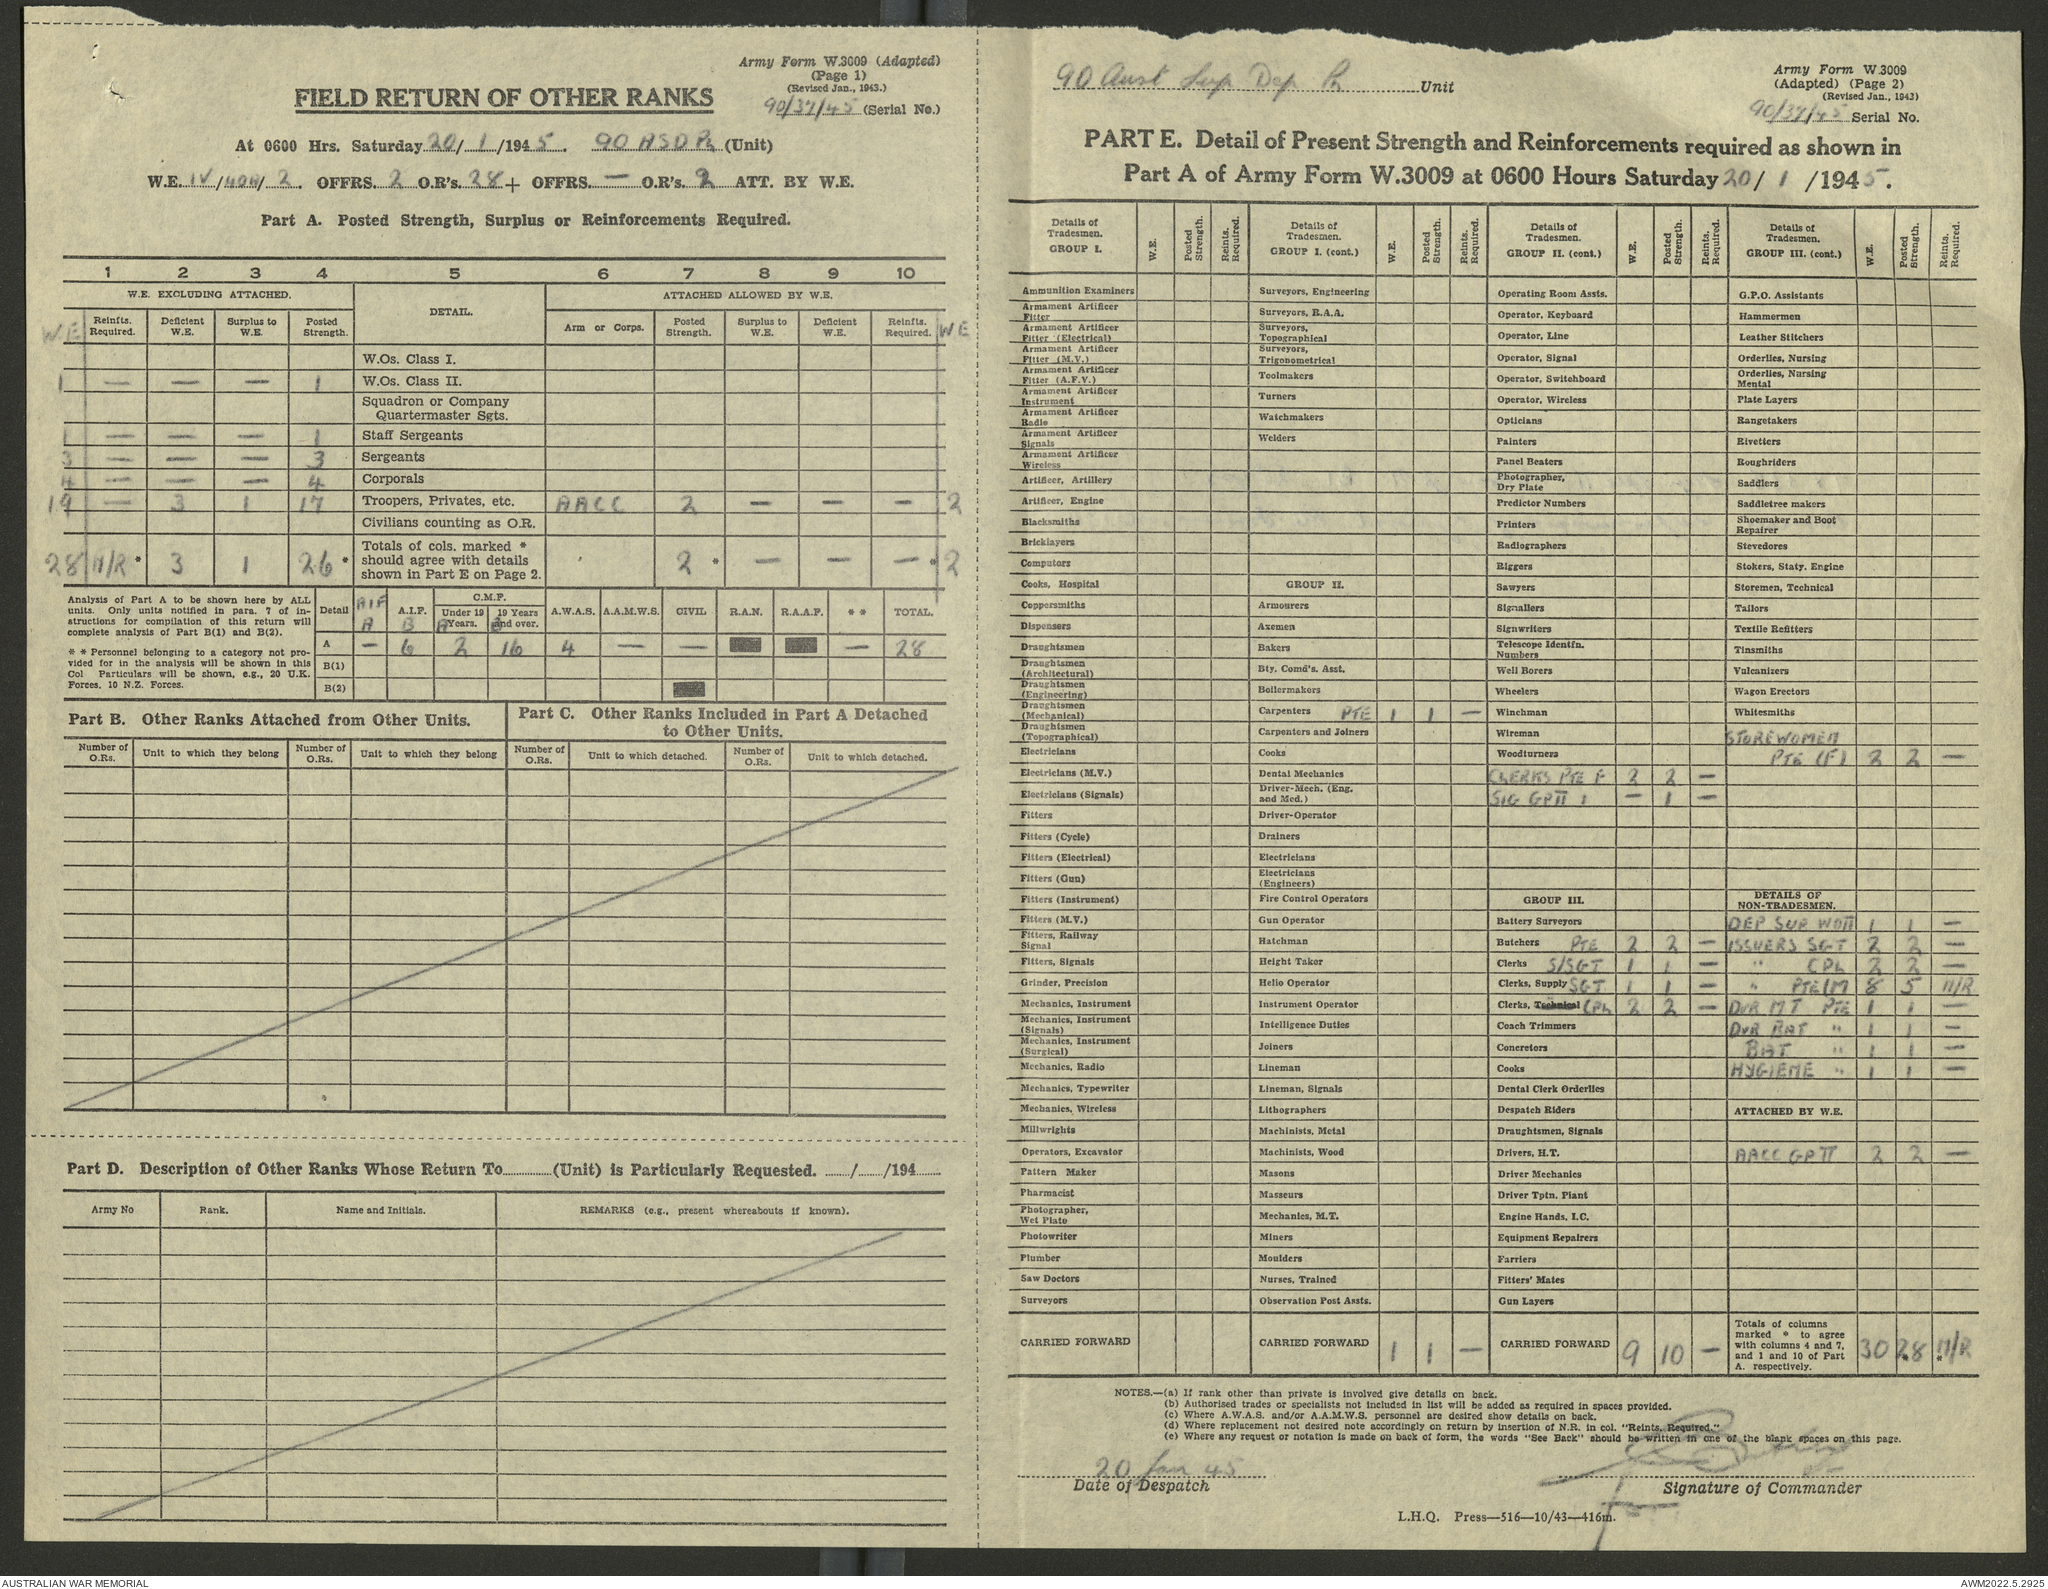 Army Form W.3009 (Adapted)
(Page 1)
(Revised Jan., 1943.)
FIELD RETURN OF OTHER RANKS
90/37/45 (Serial No.)
At 0600 Hrs. Saturday 20/ 1 /1945. 90 ASD Pl (Unit)
W.E. IV/40A/2. OFFRS. 2 O.R's. 28 + OFFRS. — O.R's. 2 ATT. BY W.E.
Part A. Posted Strength, Surplus or Reinforcements Required.
1 2 3 4 5 6 7 8 9 10
W.E. EXCLUDING ATTACHED. DETAIL. ATTACHED ALLOWED BY W.E.
W.E Reinfts. Required. Deficient W.E. Surplus to W.E. Posted Strength. Arm or Corps. Posted Strength. Surplus to W.E. Deficient W.E. Reinfts. Required. W E
W.Os. Class I.
1 — — — 1 W.Os. Class II.
Squadron or Company
Quartermaster Sgts.
1 — — — 1 Staff Sergeants
3 — — — 3 Sergeants
4 — — — 4 Corporals
19 — 3 1 17 Troopers, Privates, etc. AACC 2 — — — 2
Civilians counting as O.R.
28 N/R * 3 1 26 * Totals of cols. marked * should agree with details shown in Part E on Page 2. 2 * — — — * 2
Analysis of Part A to be shown here by ALL units. Only units notified in para. 7 of instructions for compilation of this return will complete analysis of Part B(1) and B(2).
* * Personnel belonging to a category not provided for in the analysis will be shown in this Col Particulars will be shown, e.g., 20 U.K. Forces, 10 N.Z. Forces.
Detail AIF A A.I.F. B C.M.F. Under 19 Years. A 19 Years and over. B A.W.A.S. A.A.M.W.S. CIVIL R.A.N. R.A.A.F. * * TOTAL.
A — 6 2 16 4 — — — 28
B(1)
B(2)
Part B. Other Ranks Attached from Other Units.
Part C. Other Ranks Included in Part A Detached to Other Units.
Number of O.Rs. Unit to which they belong Number of O.Rs. Unit to which they belong Number of O.Rs. Unit to which detached. Number of O.Rs. Unit to which detached.
Part D. Description of Other Ranks Whose Return To (Unit) is Particularly Requested. / /194
Army No Rank. Name and Initials. REMARKS (e.g., present whereabouts if known).
90 Aust Sup Dep Pl Unit
Army Form W.3009
(Adapted) (Page 2)
(Revised Jan., 1943)
90/37/45 Serial No.
PART E. Detail of Present Strength and Reinforcements required as shown in
Part A of Army Form W.3009 at 0600 Hours Saturday 20/ 1 /1945.
Details of Tradesmen. GROUP I. W.E. Posted Strength. Reints. Required.
Ammunition Examiners
Armament Artificer Fitter
Armament Artificer Fitter (Electrical)
Armament Artificer Fitter (M.V.)
Armament Artificer Fitter (A.F.V.)
Armament Artificer Instrument
Armament Artificer Radio
Armament Artificer Signals
Armament Artificer Wireless
Artificer, Artillery
Artificer, Engine
Blacksmiths
Bricklayers
Computors
Cooks, Hospital
Coppersmiths
Dispensers
Draughtsmen
Draughtsmen (Architectural)
Draughtsmen (Engineering)
Draughtsmen (Mechanical)
Draughtsmen (Topographical)
Electricians
Electricians (M.V.)
Electricians (Signals)
Fitters
Fitters (Cycle)
Fitters (Electrical)
Fitters (Gun)
Fitters (Instrument)
Fitters (M.V.)
Fitters, Railway Signal
Fitters, Signals
Grinder, Precision
Mechanics, Instrument
Mechanics, Instrument (Signals)
Mechanics, Instrument (Surgical)
Mechanics, Radio
Mechanics, Typewriter
Mechanics, Wireless
Millwrights
Operators, Excavator
Pattern Maker
Pharmacist
Photographer, Wet Plate
Photowriter
Plumber
Saw Doctors
Surveyors
CARRIED FORWARD
Details of Tradesmen. GROUP I. (cont.) W.E. Posted Strength. Reints. Required.
Surveyors, Engineering
Surveyors, R.A.A.
Surveyors, Topographical
Surveyors, Trigonometrical
Toolmakers
Turners
Watchmakers
Welders
GROUP II.
Armourers
Axemen
Bakers
Bty. Comd's. Asst.
Boilermakers
Carpenters PTE 1 1 —
Carpenters and Joiners
Cooks
Dental Mechanics
Driver-Mech. (Eng. and Med.)
Driver-Operator
Drainers
Electricians
Electricians (Engineers)
Fire Control Operators
Gun Operator
Hatchman
Height Taker
Helio Operator
Instrument Operator
Intelligence Duties
Joiners
Lineman
Lineman, Signals
Lithographers
Machinists, Metal
Machinists, Wood
Masons
Masseurs
Mechanics, M.T.
Miners
Moulders
Nurses, Trained
Observation Post Assts.
CARRIED FORWARD 1 1 —
Details of Tradesmen. GROUP II. (cont.) W.E. Posted Strength. Reints. Required.
Operating Room Assts.
Operator, Keyboard
Operator, Line
Operator, Signal
Operator, Switchboard
Operator, Wireless
Opticians
Painters
Panel Beaters
Photographer, Dry Plate
Predictor Numbers
Printers
Radiographers
Riggers
Sawyers
Signallers
Signwriters
Telescope Identfn. Numbers
Well Borers
Wheelers
Winchman
Wireman
Woodturners
CLERKS PTE F 2 2 —
SIG GP II 1 — 1 —
GROUP III.
Battery Surveyors
Butchers PTE 2 2 —
Clerks S/SGT 1 1 —
Clerks, Supply SGT 1 1 —
Clerks, Technical CPL 2 2 —
Coach Trimmers
Concretors
Cooks
Dental Clerk Orderlies
Despatch Riders
Draughtsmen, Signals
Drivers, H.T.
Driver Mechanics
Driver Tptn. Plant
Engine Hands, I.C.
Equipment Repairers
Farriers
Fitters' Mates
Gun Layers
CARRIED FORWARD 9 10 —
Details of Tradesmen. GROUP III. (cont.) W.E. Posted Strength. Reints. Required.
G.P.O. Assistants
Hammermen
Leather Stitchers
Orderlies, Nursing
Orderlies, Nursing Mental
Plate Layers
Rangetakers
Rivetters
Roughriders
Saddlers
Saddletree makers
Shoemaker and Boot Repairer
Stevedores
Stokers, Staty. Engine
Storemen, Technical
Tailors
Textile Refitters
Tinsmiths
Vulcanizers
Wagon Erectors
Whitesmiths
STOREWOMEN
PTE (F) 2 2 —
DETAILS OF NON-TRADESMEN.
DEP SUP WOII 1 1 —
ISSUERS SGT 2 2 —
" CPL 2 2 —
" PTE (M 8 5 N/R
DVR MT PTE 1 1 —
DVR BAT " 1 1 —
BAT " 1 1 —
HYGIENE " 1 1 —
ATTACHED BY W.E.
AACC GP II 2 2 —
Totals of columns marked * to agree with columns 4 and 7, and 1 and 10 of Part A. respectively. 30 28 * N/R *
NOTES.—(a) If rank other than private is involved give details on back.
(b) Authorised trades or specialists not included in list will be added as required in spaces provided.
(c) Where A.W.A.S. and/or A.A.M.W.S. personnel are desired show details on back.
(d) Where replacement not desired note accordingly on return by insertion of N.R. in col. "Reints. Required."
(e) Where any request or notation is made on back of form, the words "See Back" should be written in one of the blank spaces on this page.
20 Jan 45
Date of Despatch
Signature of Commander
L.H.Q. Press—516—10/43—416m.
AUSTRALIAN WAR MEMORIAL
AWM2022.5.2925